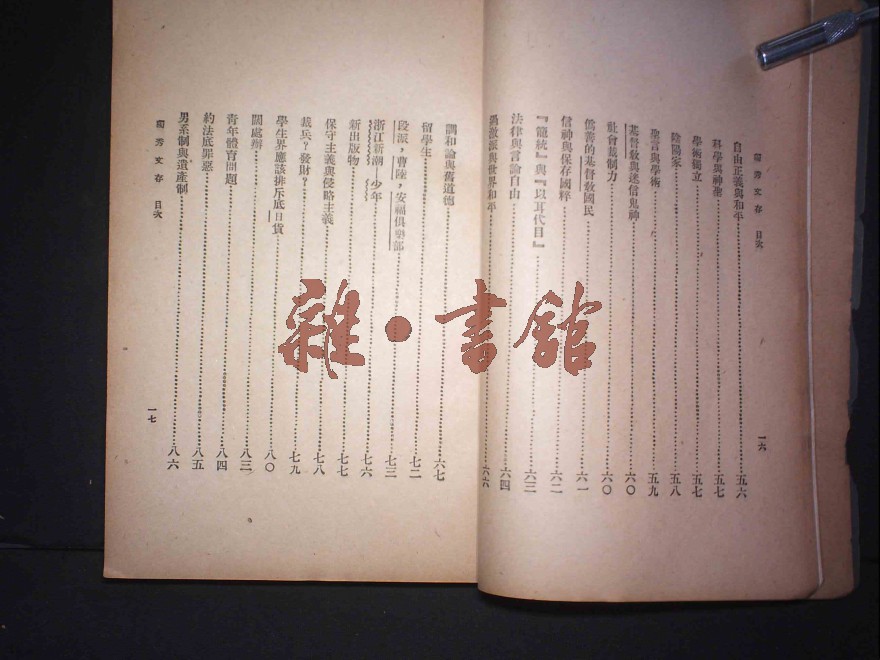 獨秀文存 目次 一六
自由正義與和平……五六
科學與神聖……五七
學術獨立……五七
陰陽家……五八
聖言與學術……五九
基督教與迷信鬼神……六〇
社會裁制力……六〇
僞善的基督教國民……六一
信神與保存國粹……六二
『籠統』與『以耳代目』……六三
法律與言論自由……六四
過激派與世界和平……六六
調和論與舊道德……六七
留學生……七二
段派，曹陸，安福俱樂部……七三
浙江新潮—少年……七六
新出版物……七七
保守主義與侵略主義……七八
裁兵？發財？……七九
學生界應該排斥底日貨……八〇
處辦……八三
青年體育問題……八四
約法底罪惡……八五
男系制與遺產制……八六
獨秀文存 目次 一七
雜·書館